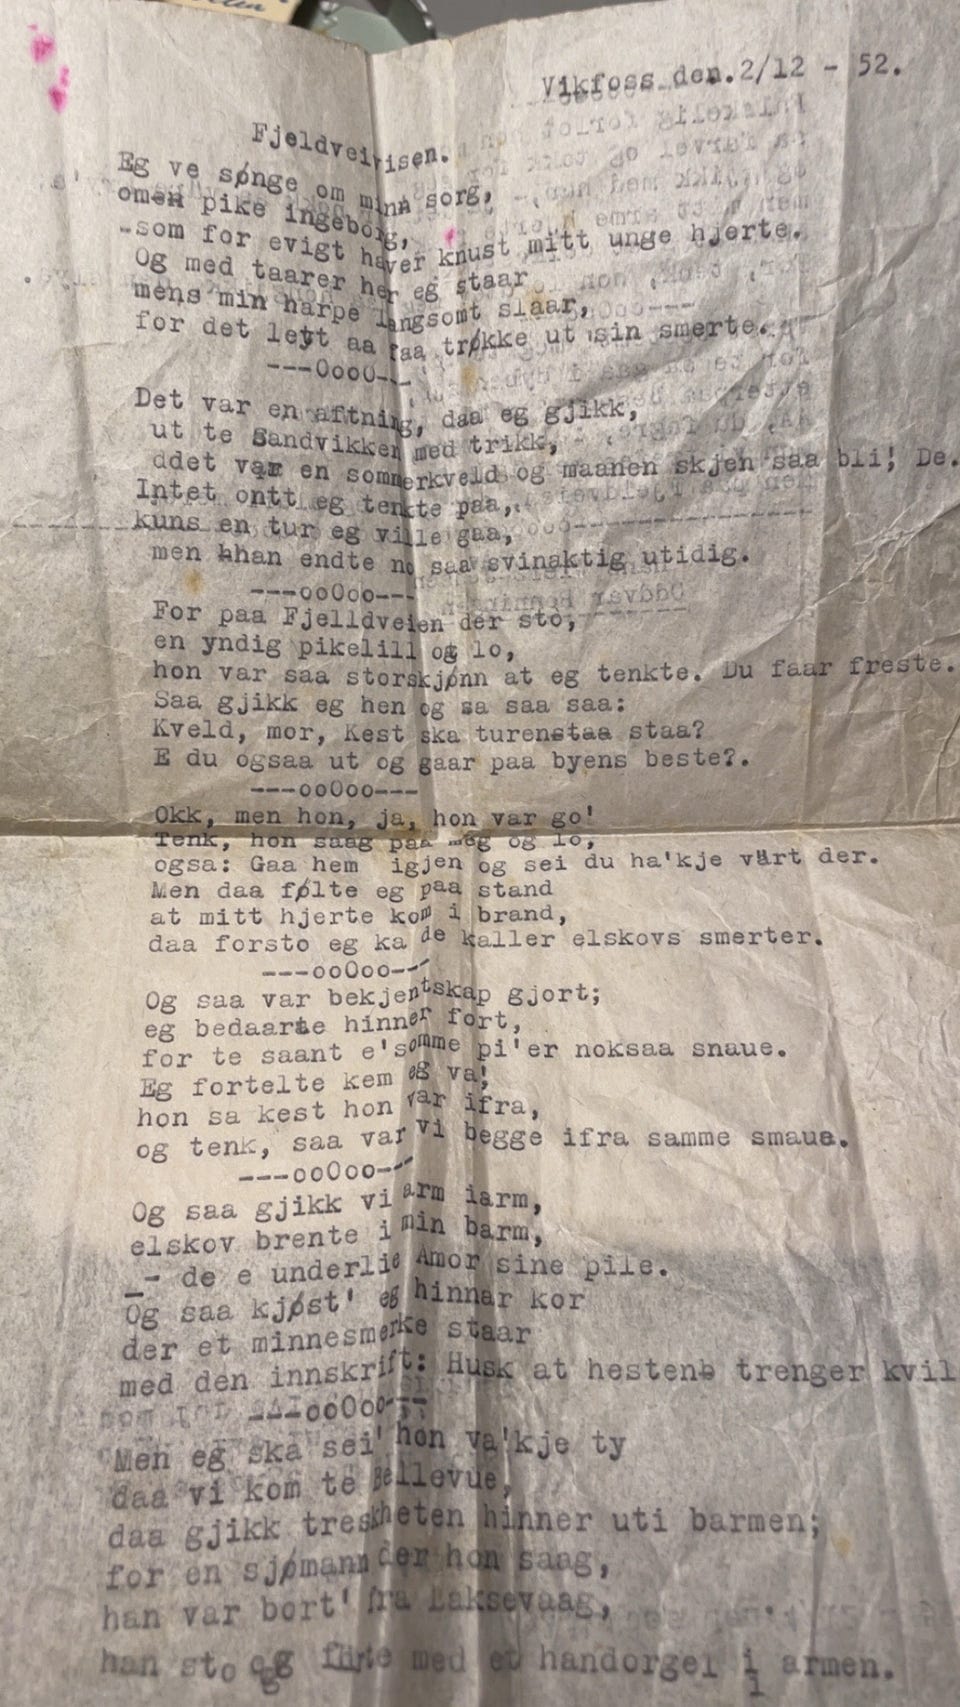 Vikfoss den.2/12 - 52.
Fjeldveivisen.
Eg ve sønge om minn sorg,
omen pike ingeborg,
-som for evigt haver knust mitt unge hjerte.
Og med taarer her eg staar
mens min harpe langsomt slaar,
for det lett aa faa trøkke ut sin smerte.
---OooO---
Det var en aftning, daa eg gjikk,
ut te Sandvikken med trikk,
ddet var en sommerkveld og maanen skjen saa bli! De.
Intet ontt eg tenkte paa,.
kuns en tur eg ville gaa,
men hhan endte no saa svinaktig utidig.
---ooOoo---
For paa Fjelldveien der sto,
en yndig pikelill og lo,
hon var saa storskjønn at eg tenkte. Du faar freste.
Saa gjikk eg hen og sa saa saa:
Kveld, mor, Kest ska turenstaa staa?
E du ogsaa ut og gaar paa byens beste?.
---ooOoo---
Okk, men hon, ja, hon var go!
Tenk, hon saag paa meg og lo,
ogsa: Gaa hem igjen og sei du ha'kje vårt der.
Men daa følte eg paa stand
at mitt hjerte kom i brand,
daa forsto eg ka de kaller elskovs smerter.
---ooOoo---
Og saa var bekjentskap gjort;
eg bedaarte hinner fort,
for te saant e'somme pi'er noksaa snaue.
Eg fortelte kem eg va;
hon sa kest hon var ifra,
og tenk, saa var vi begge ifra samme smaue.
---ooOoo---
Og saa gjikk vi arm iarm,
elskov brente i min barm,
- de e underlie Amor sine pile.
Og saa kjøst' eg hinnar kor
der et minnesmerke staar
med den innskrift: Husk at hestenb trenger kvil
---ooOoo---
Men eg ska sei' hon va'kje ty
daa vi kom te Bellevue,
daa gjikk treskheten hinner uti barmen;
for en sjømann der hon saag,
han var bort' fra Laksevaag,
han sto og med et handorgel i armen.